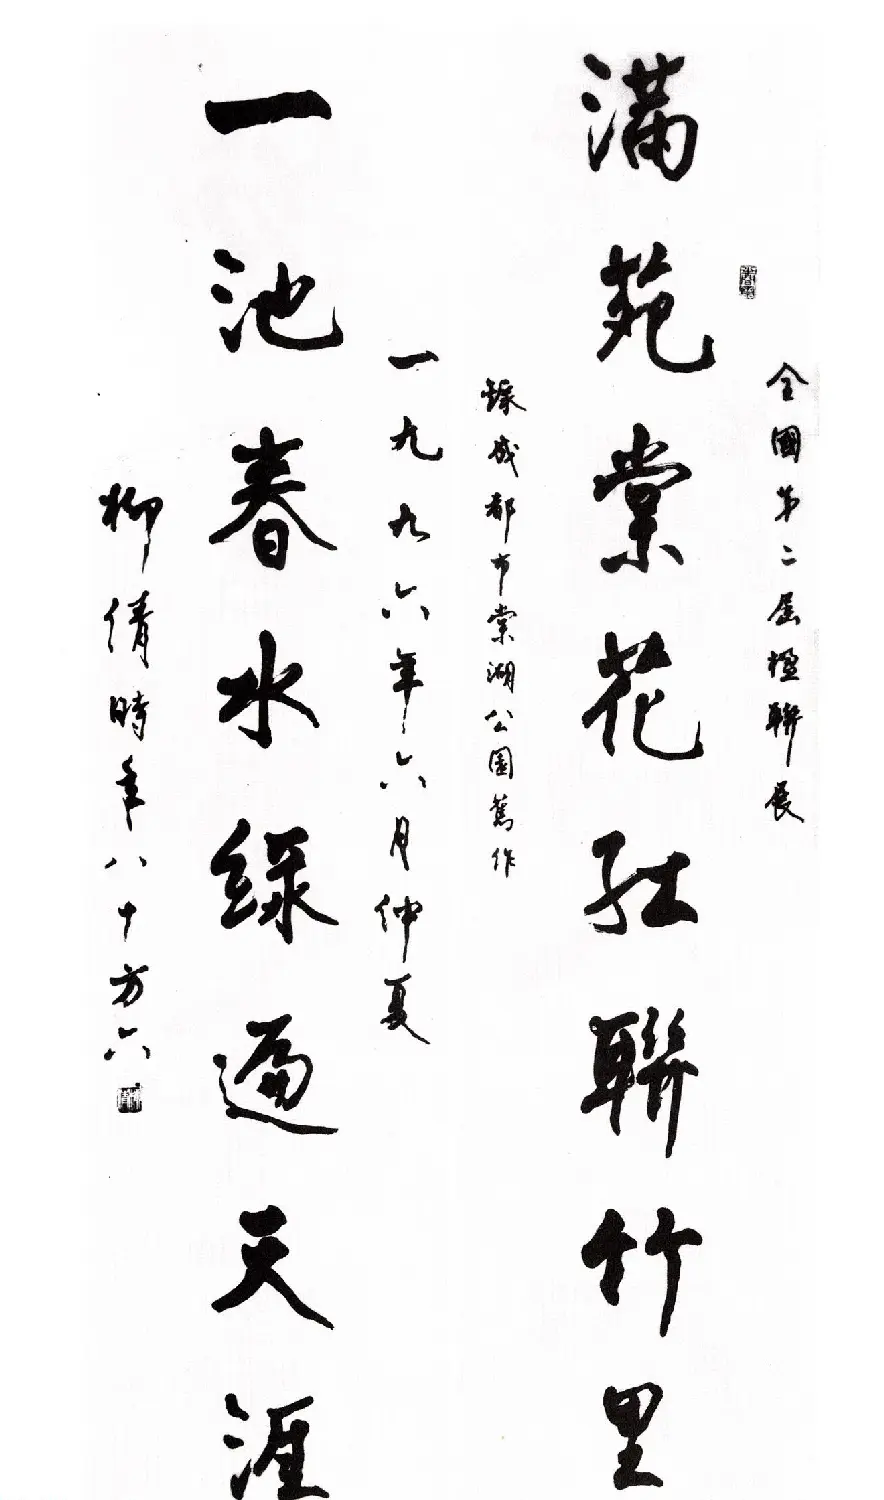 全國第二屆楹聯展
滿苑棠花紅聯竹里
錄成都市棠湖公園舊作
一九九六年六月仲夏
一池春水綠遍天涯
柳倩時年八十方六